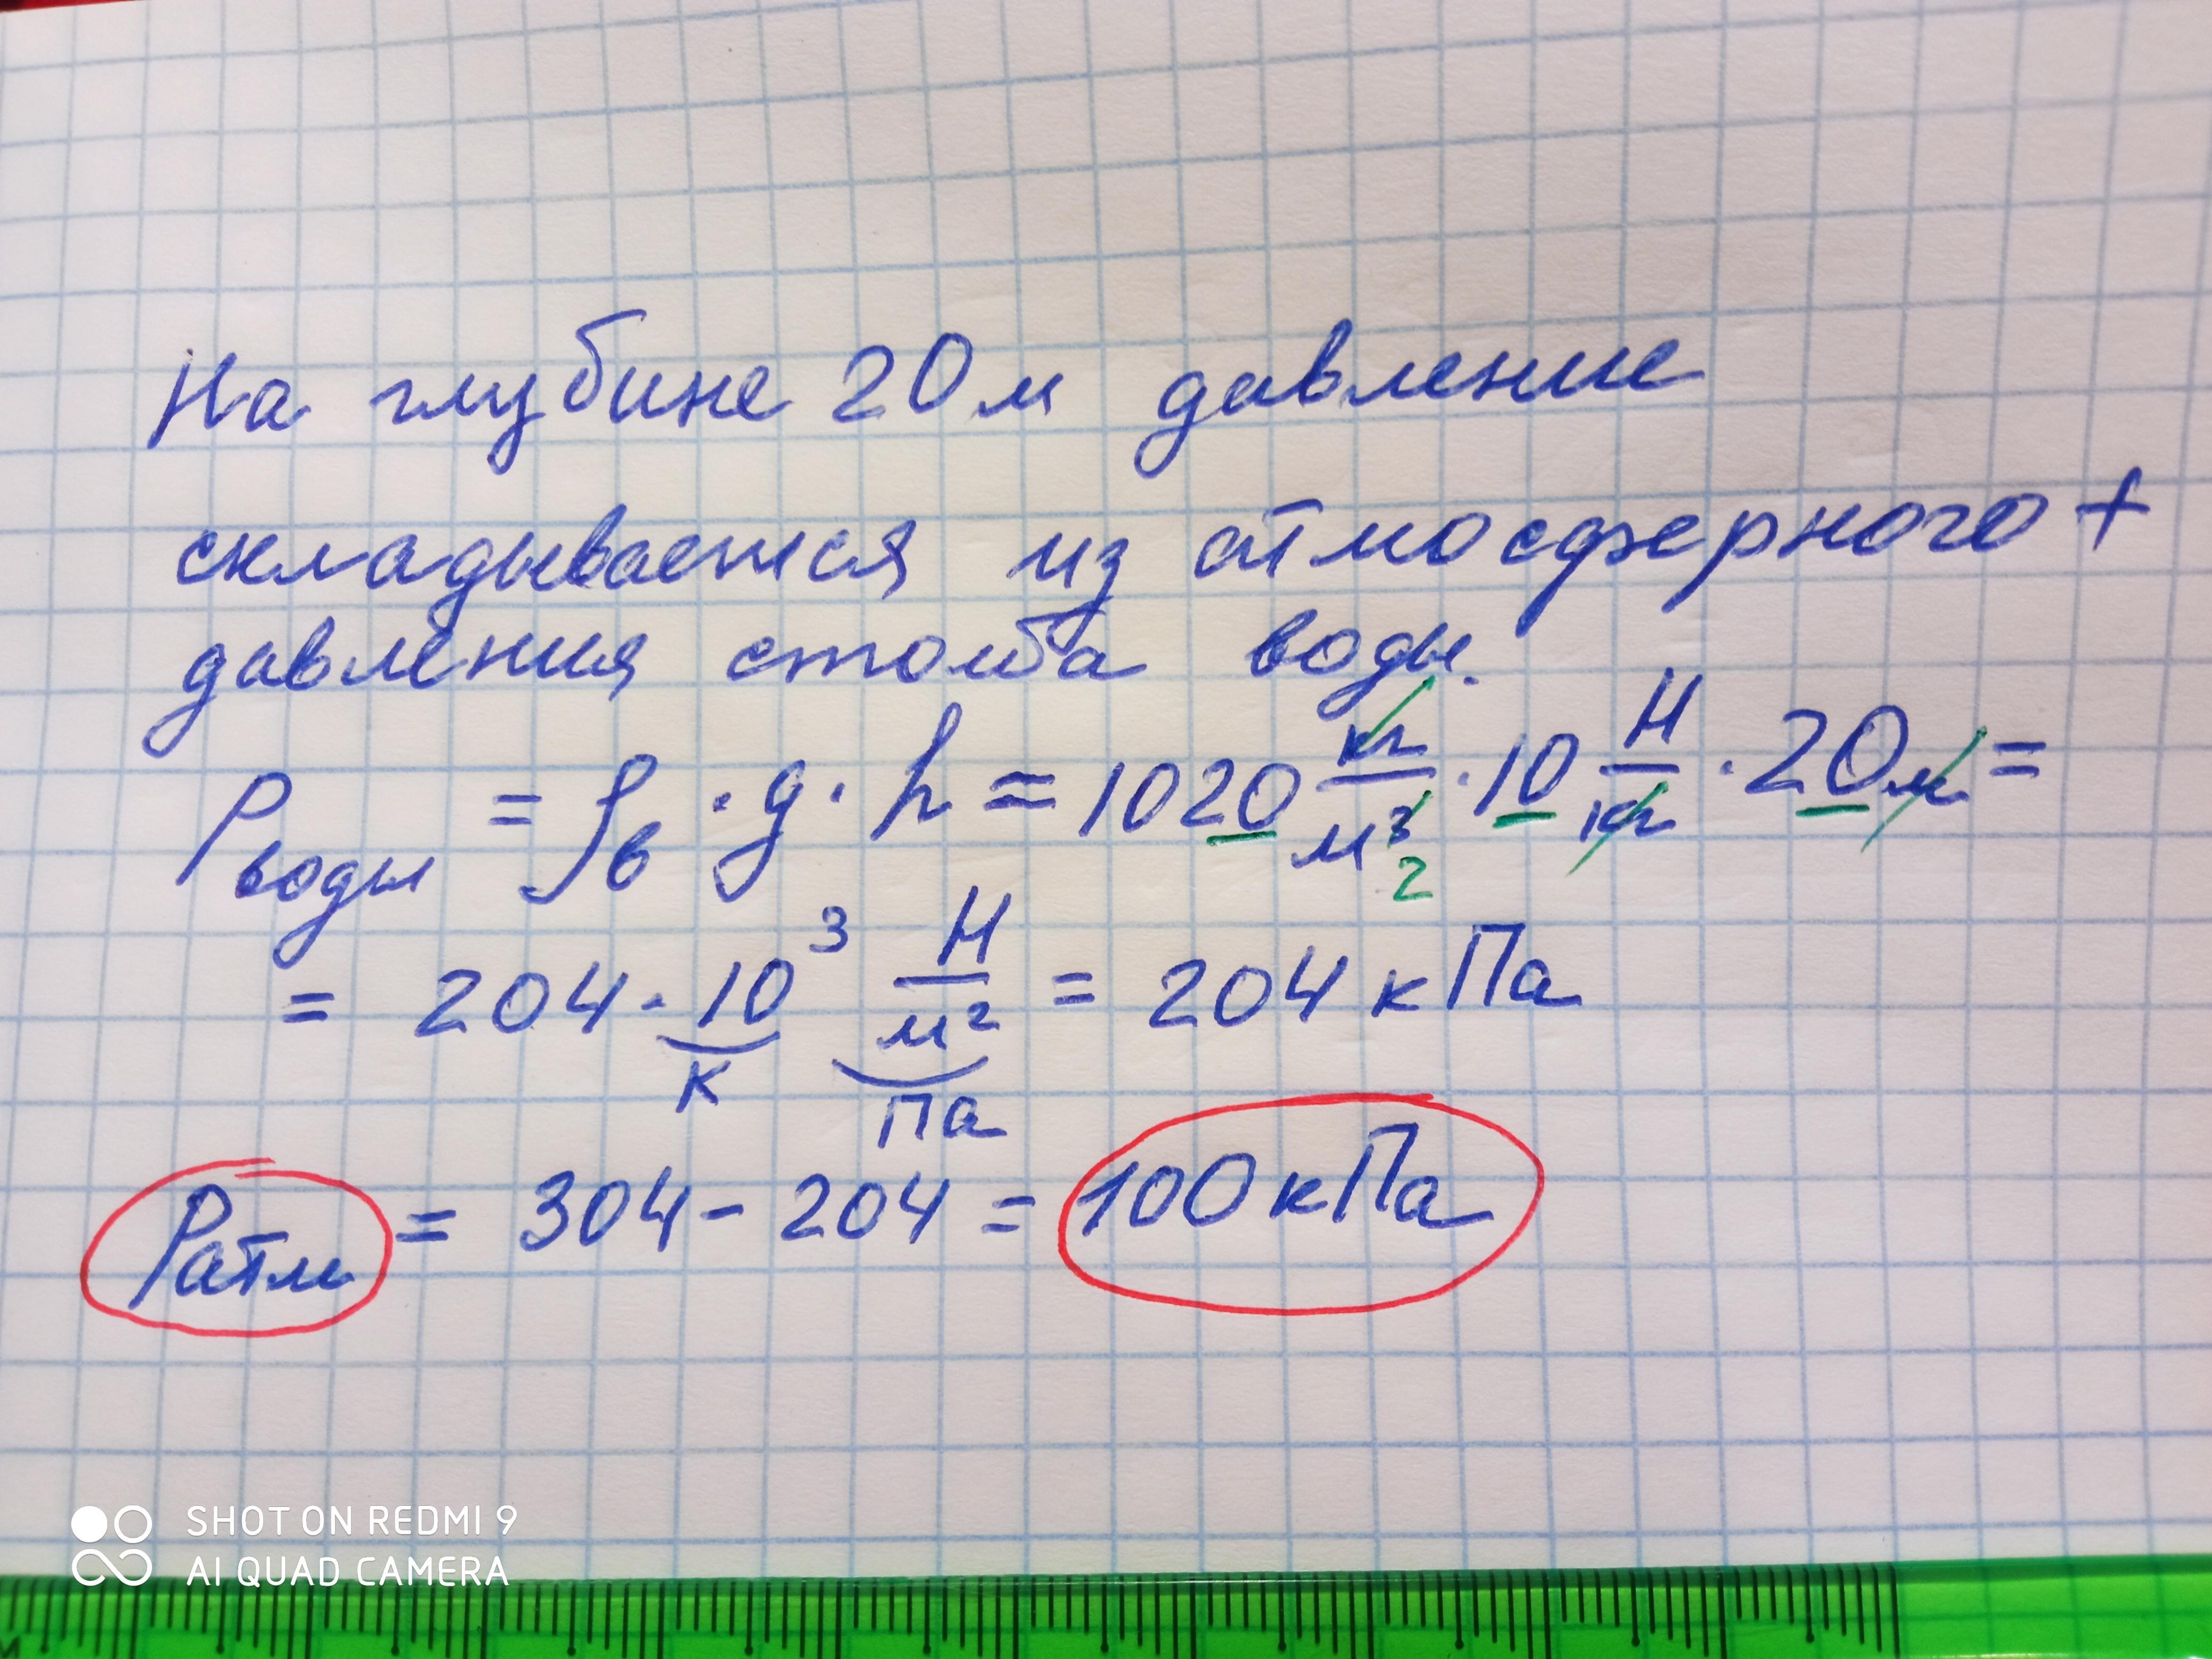 На глубине 20м давление
складывается из атмосферного +
давления столба воды.
Pводы = ρв · g · h = 1020 кг/м³ 2 · 10 Н/кг · 20м =
= 204 · 10³ Н/м² = 204 кПа
к Па
Pатм = 304 - 204 = 100 кПа
SHOT ON REDMI 9
AI QUAD CAMERA